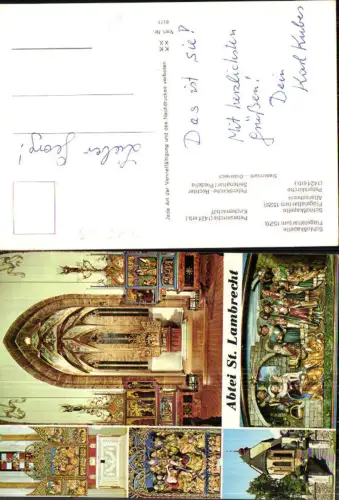 Lieber
Georg!
Das ist sie!
Mit herzlichsten
Grüßen!
Dein
Karl Kubes
Jede Art der Vervielfältigung und des Nachdruckes verboten
Verl. Nr.
Schloßkapelle
Flügelaltar (um 1520)
Schloßkapelle
Flügelaltar (um 1520)
Altarschrein
Peterskirche
(1424 erb.)
Peterskirche (1424 erb.)
Kirchenschiff
Peterskirche · Rechter
Seitenaltar / Predella
Steiermark — Österreich
Abtei St. Lambrecht